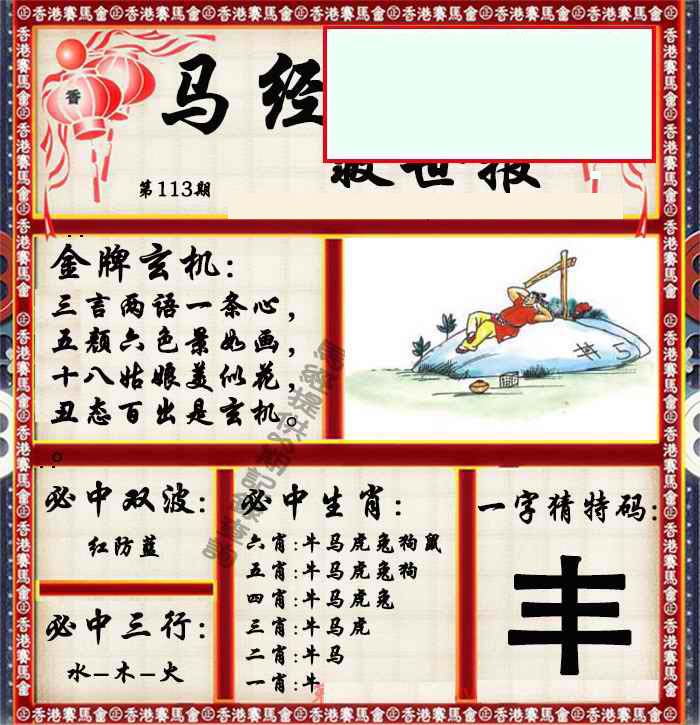 香港賽馬會
香
马经
救世报
第113期
金牌玄机:
三言两语一条心,
五颜六色景如画,
十八姑娘美似花,
丑态百出是玄机。
必中双波:
红防蓝
必中三行:
水-木-火
必中生肖:
六肖:牛马虎兔狗鼠
五肖:牛马虎兔狗
四肖:牛马虎兔
三肖:牛马虎
二肖:牛马
一肖:牛
一字猜特码:
丰